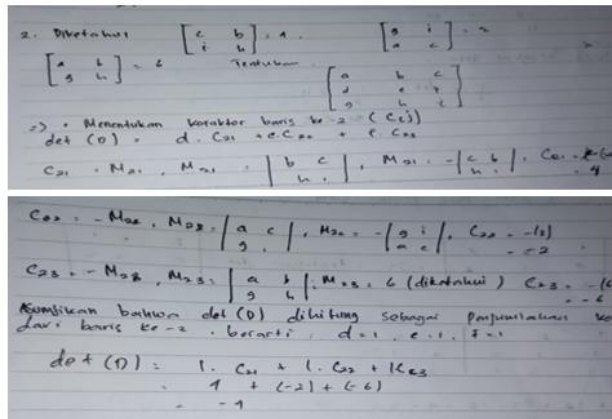 2. Diketahui [c b / i h] = 4. [g i / a c] = 2
[a b / g h] = 6 Tentukan [a b c / d e f / g h i]
=> • Menentukan koraktor baris ke-2 (C2j)
det (D) = d. C21 + e. C22 + f. C23
C21 = -M21, M21 = |b c / h i|, M21 = -|c b / i h|, C21 =
= 4
C22 = -M22, M22 = |a c / g i|, M22 = -|g i / a c|, C22 = -(2)
= -2
C23 = -M23, M23 = |a b / g h|, M23 = 6 (diketahui) C23 = -(6
= -6
Asumsikan bahwa det (D) dihitung sebagai penjumlahan ko
dari baris ke-2. berarti, d=1, e=1, f=1
det (D) = 1. C21 + 1. C22 + 1. C23
= 4 + (-2) + (-6)
= -4